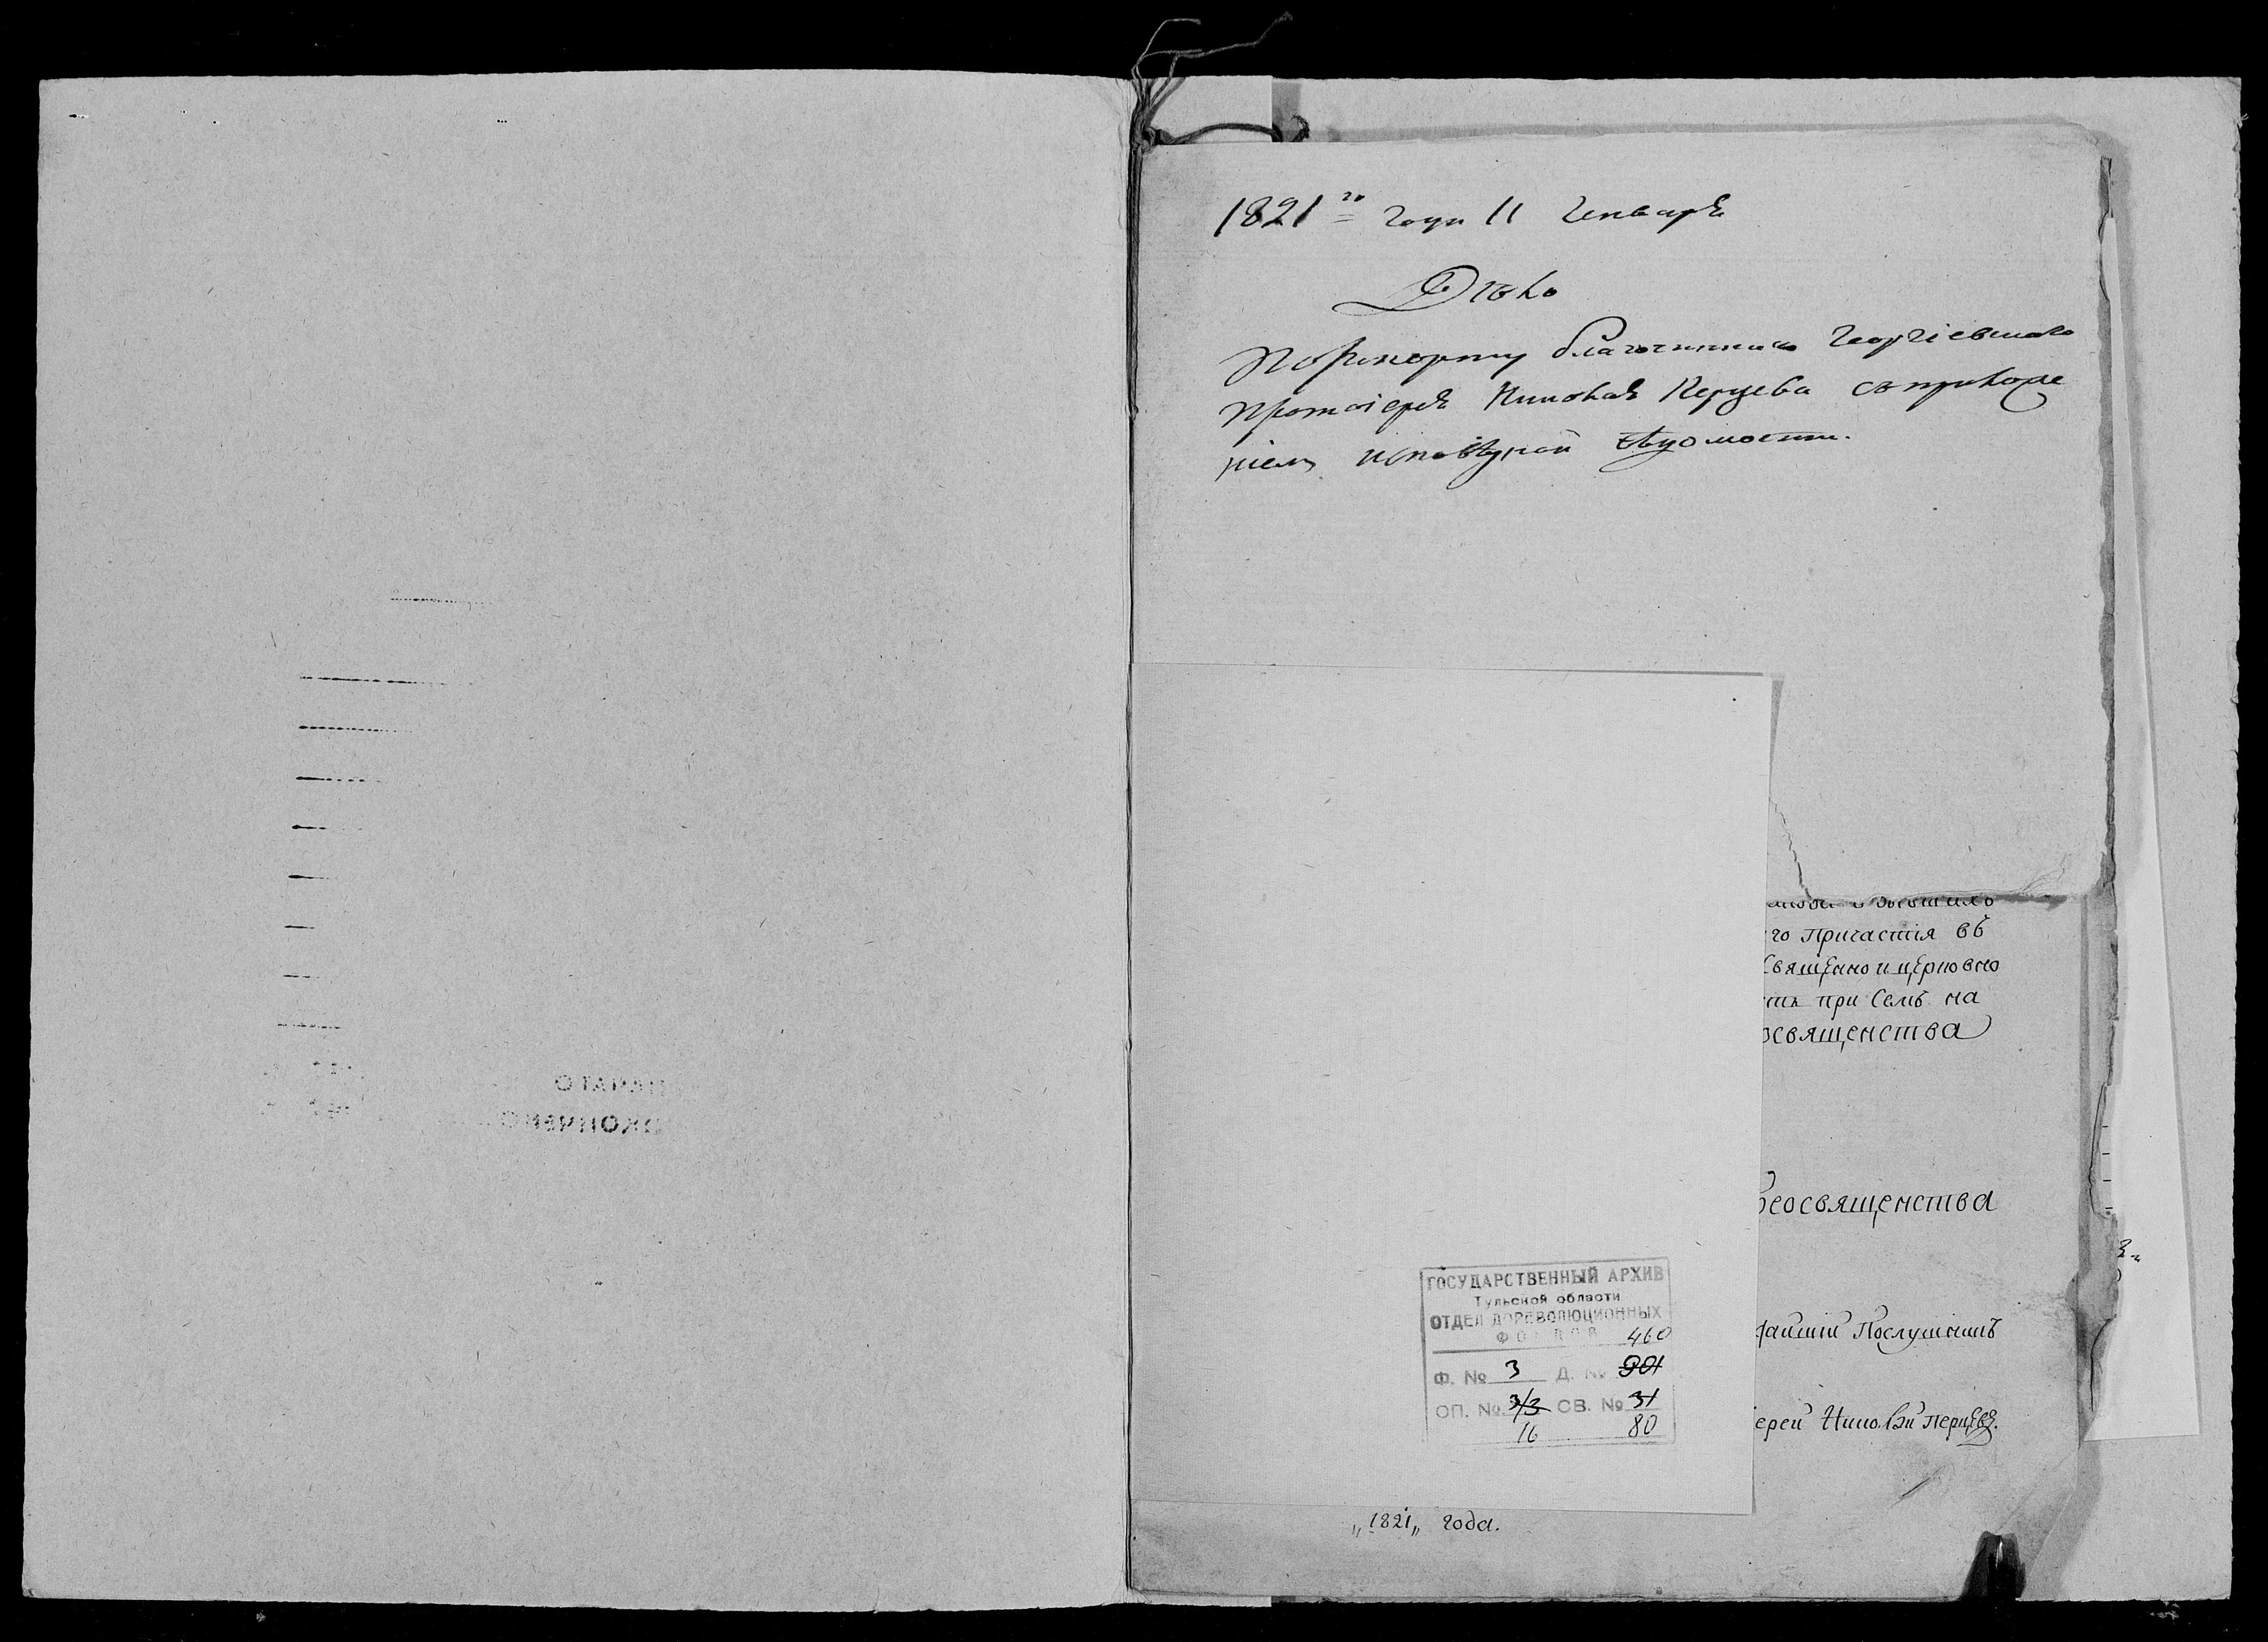 1821го года 11 Генваря
Дѣло
По рапорту благочиннаго Георгіевскаго
протоіерея Николая Перцева съ приложе
ніемъ исповѣдной вѣдомости.
го Причастія въ
Священно и церковно
ть при семъ на
освященства
реосвященства
жайшій Послушникъ
ерей Николай Перцевъ.
ГОСУДАРСТВЕННЫЙ АРХИВ
Тульской области
ОТДЕЛ ДОРЕВОЛЮЦИОННЫХ
ФОНДОВ 460
Ф. № 3 Д. № 901
ОП. № 3/3 СВ. № 31
16 80
„1821„ года.
НАЧАТО
ОКОНЧЕНО